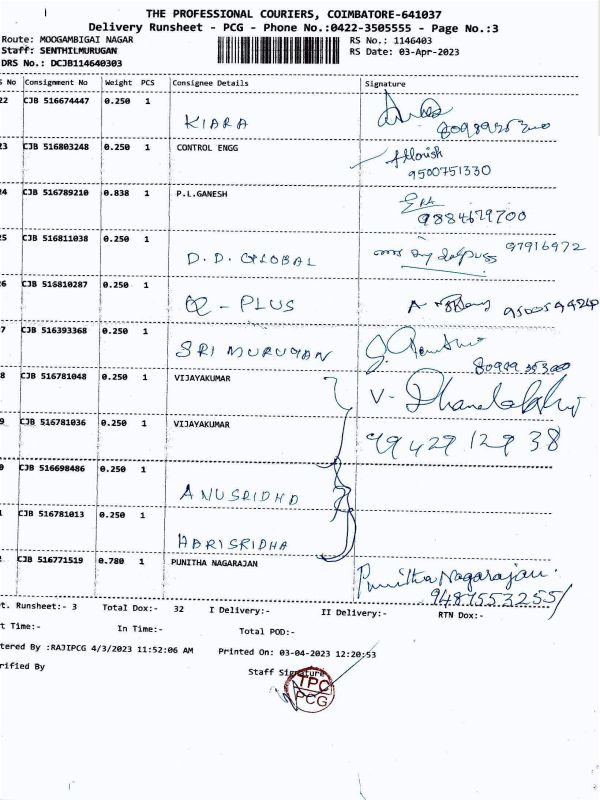 THE PROFESSIONAL COURIERS, COIMBATORE-641037
Delivery Runsheet - PCG - Phone No.:0422-3505555 - Page No.:3
Route: MOOGAMBIGAI NAGAR RS No.: 1146403
Staff: SENTHILMURUGAN RS Date: 03-Apr-2023
DRS No.: DCJB114640303
S No Consignment No Weight PCS Consignee Details Signature
22 CJB 516674447 0.250 1
KIARA
23 CJB 516803248 0.250 1 CONTROL ENGG
9500751330
24 CJB 516789210 0.838 1 P.L.GANESH
9884679700
25 CJB 516811038 0.250 1
D.D. GLOBAL 97916972
26 CJB 516810287 0.250 1
Q - PLUS
7 CJB 516393368 0.250 1
SRI MURUGAN
8 CJB 516781048 0.250 1 VIJAYAKUMAR
V.
9 CJB 516781036 0.250 1 VIJAYAKUMAR
99429 129 38
0 CJB 516698486 0.250 1
ANUSRIDHD
1 CJB 516781013 0.250 1
HARISRIDHA
2 CJB 516771519 0.780 1 PUNITHA NAGARAJAN
Punitha Nagarajan.
9487553255
t. Runsheet:- 3 Total Dox:- 32 I Delivery:- II Delivery:- RTN Dox:-
t Time:- In Time:- Total POD:-
tered By :RAJIPCG 4/3/2023 11:52:06 AM Printed On: 03-04-2023 12:20:53
rified By Staff Signature
TPC
PCG